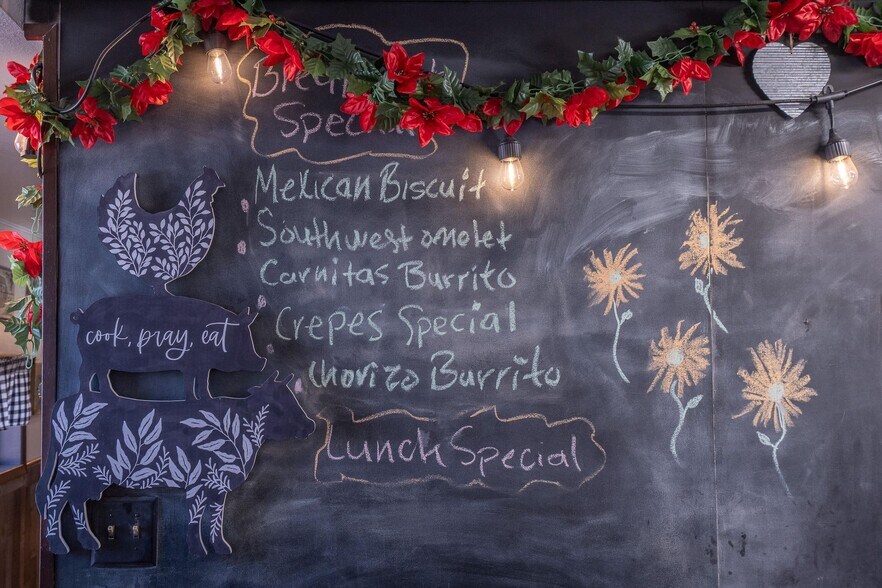 Special
Mexican Biscuit
Southwest omolet
Carnitas Burrito
Crepes Special
chorizo Burrito
Lunch Special
cook, pray, eat